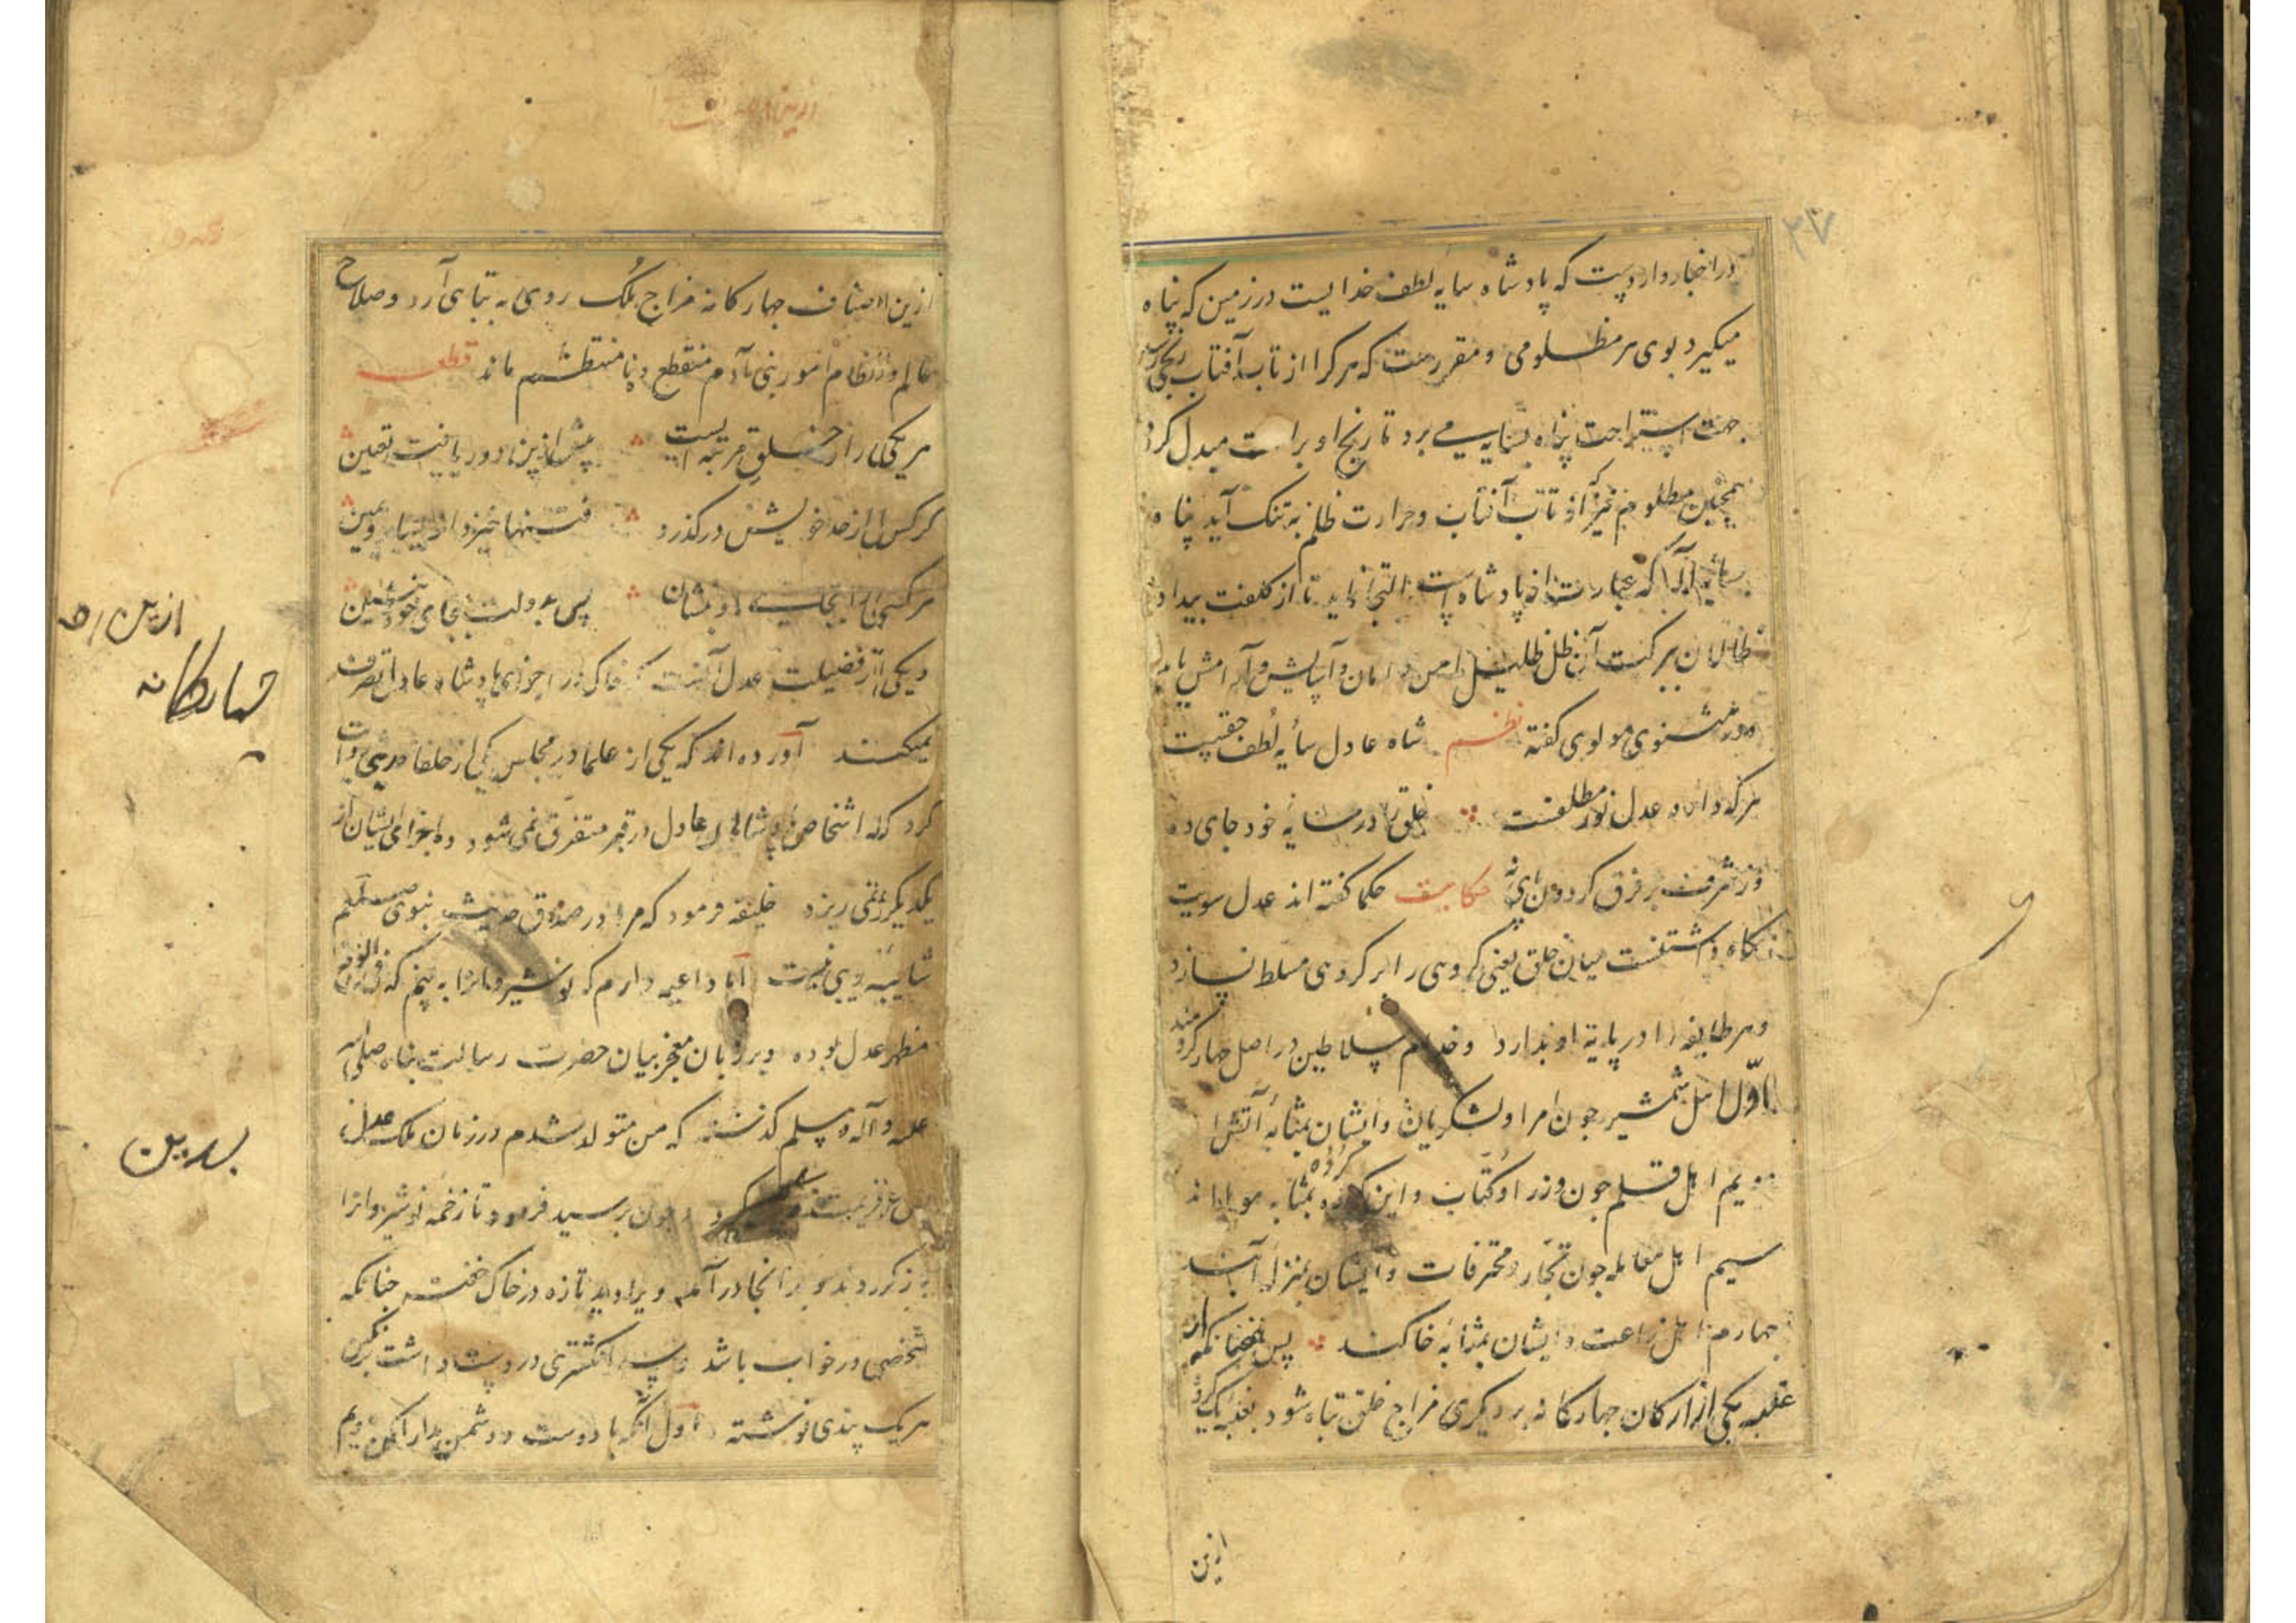 ۲۷
در اخبار وارد است که پادشاه سایه لطف خدایست در زمین که پناه
میگیرد بوی هر مظلومی و مقررست که هر کرا از تاب آفتاب رنجی رسد
جهت استراحت پناه بسایه می برد تا رنج او براحت مبدل کردد
همچنین مظلوم نیز که از تاب آفتاب و حرارت ظلم به تنک آید پناه
سایه اله که عبارت از پادشاه است التجا نماید تا از کلفت بیداد
ظالمان ببرکت آن ظل ظلیل امن و امان و آسایش و آرامش یابد
و در مثنوی مولوی گفته نظم شاه عادل سایه لطف حقیست
هر که دارد عدل نور مطلقست خلق را در سایه خود جای ده
وز شرف بر فرق کردون پای نه حکایت حکما گفته اند عدل سویت
نکاه داشتنست میان خلق یعنی کروهی را بر کروهی مسلط نسازد
و هر طایفه را در پایه او بدارد و خدام سلاطین در اصل چهار کروهند
اول اهل شمشیر چون امرا و لشکریان و ایشان بمثابه آتش اند
دویم اهل قلم چون وزرا و کتاب و این کروه بمثابه هوا اند
سیم اهل معامله چون تجار و محترفات و ایشان بمنزله آبند
چهارم اهل زراعت و ایشان بمثابه خاکند پس همچنانکه از
غلبه یکی از ارکان چهارکانه بر دیکری مزاج خلق تباه شود بغلبه یک کروه
ازین
ازین اصناف چهارکانه مزاج ملک روی به تباهی آرد و صلاح
عالم و نظام امور بنی آدم منقطع و نا منتظم ماند قطعه
هر یکی را از خلق مرتبه ایست پیش ازین در دور یافت تعین
کر کس از حد خویش درکذرد فتنها خیزد از یسار و یمین
هر کسی را بجای او بنشان پس بدولت بجای خود بنشین
و یکی از فضیلت عدل آنست که خاک در اجزای پادشاه عادل تصرف
نمیکند آورده اند که یکی از علما در مجلس یکی از خلفا حدیثی روایت
کرد که اشخاص پادشاهان عادل در قبر متفرق نمی شود و اجزای ایشان از
یکدیکر نمی ریزد خلیفه فرمود که مرا در صدق حدیث نبوی صلعم
شایبه ریبی نیست اما داعیه دارم که نوشیروانرا به بینم که
مظهر عدل بوده و بر زبان معجز بیان حضرت رسالت پناه صلی الله
علیه و آله و سلم کذشته که من متولد شدم در زمان ملک عدل
پس عزیمت کرد چون برسید فرمود تا زخمه نوشیروانرا
باز کردند و بدانجا درآمد ویرا دید تازه در خاک خفته چنانکه
شخصی در خواب باشد و سه انکشتری در دست داشت بر نکین
هر یک پندی نوشته اول آنکه با دوست و دشمن مدارا کن دویم
ازین
چهارکانه